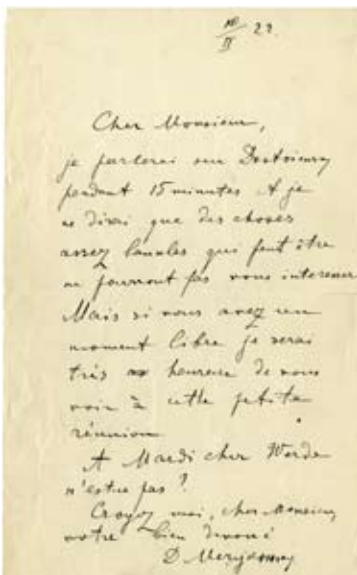 10/II 22.
Cher Monsieur,
je parlerai sur Dostoievsky
pendant 15 minutes et je
ne dirai que des choses
assez banales qui peut être
ne pourront pas vous interesser
Mais si vous avez un
moment libre je serai
très heureux de vous
voir à cette petite
réunion
A Mardi cher
n'estce pas?
Croyez moi, cher Monsieur,
votre bien devoué
D Merejkovsky